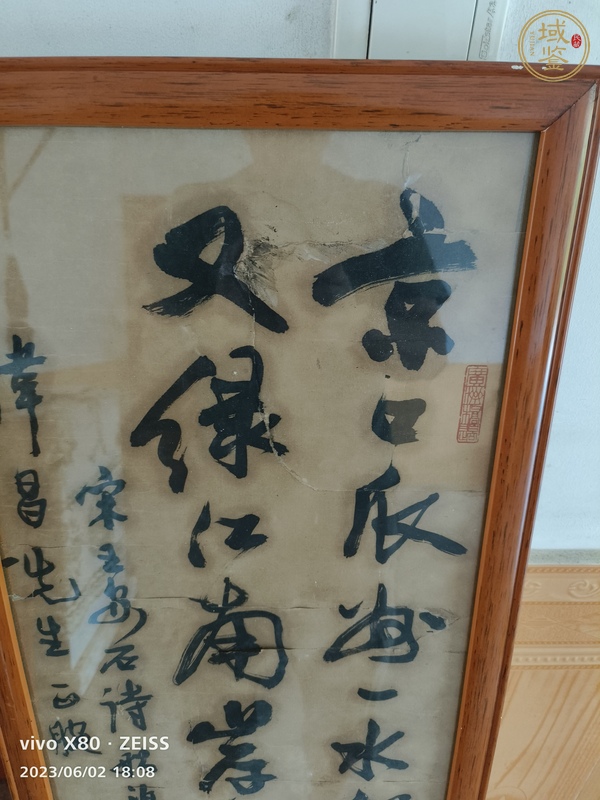 京口瓜洲一水
又绿江南岸
宋王安石诗
韋昌先生正腕
域鉴
vivo X80 · ZEISS
2023/06/02 18:08